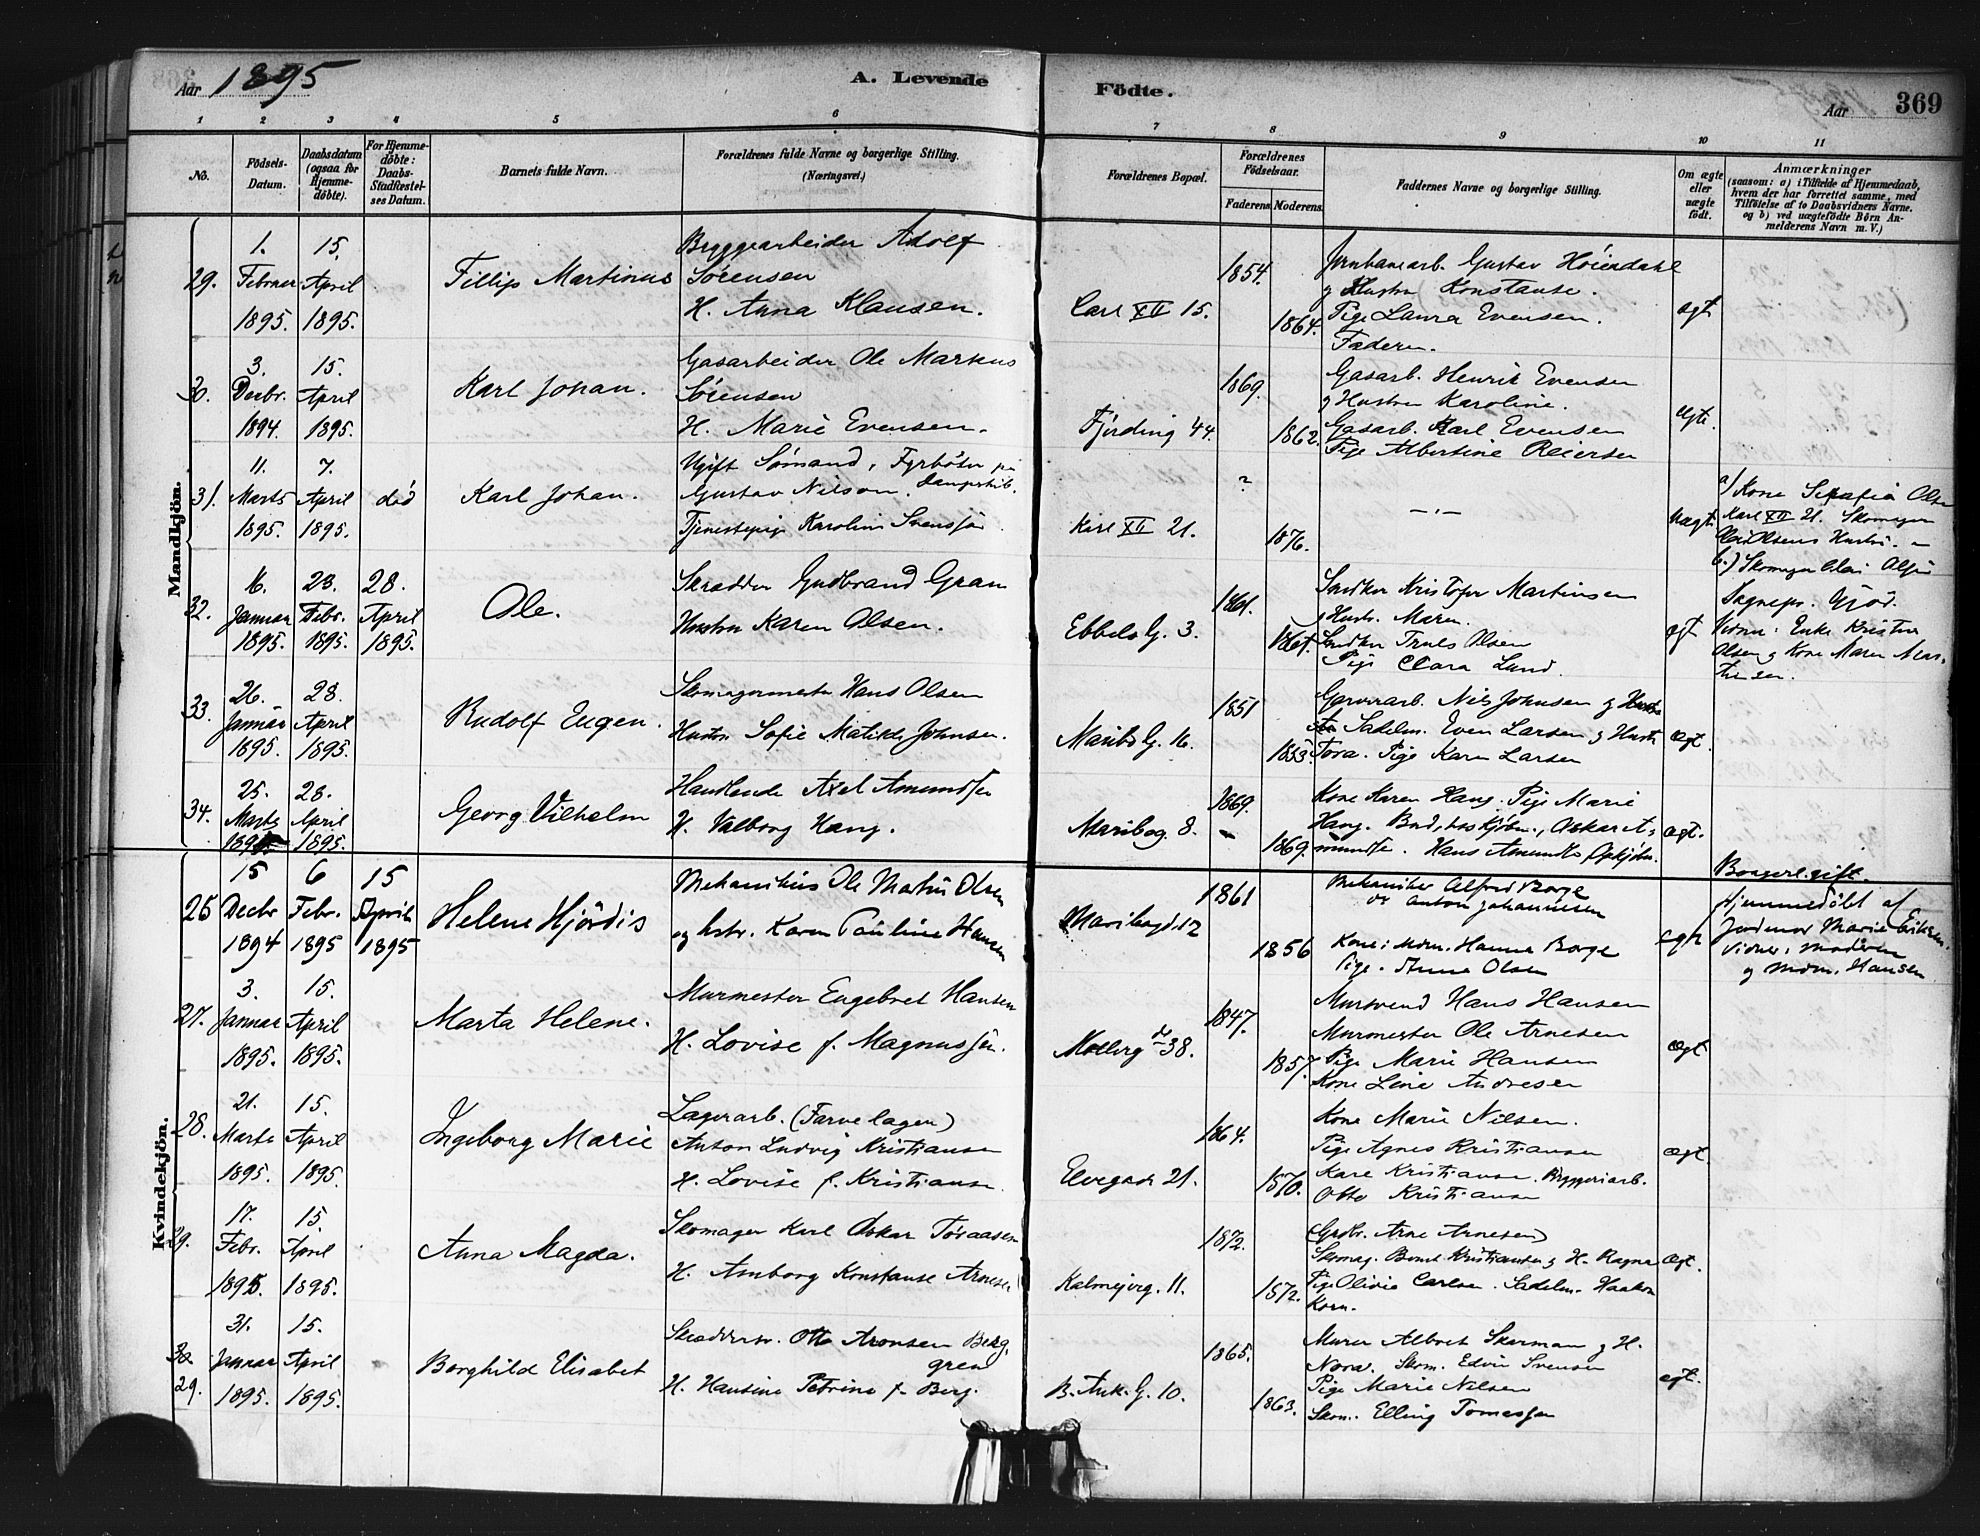 Aar 1895
A. Levende
Födte.
Aar
369
1 2 3 4 5 6 7 8 9 10 11
No.
Födsels-Datum.
Daabsdatum (ogsaa for Hjemme-döbte).
For Hjemme-döbte: Daabs-Stadfæstel-ses Datum.
Barnets fulde Navn.
Forældrenes fulde Navne og borgerlige Stilling. (Næringsvei.)
Forældrenes Bopæl.
Forældrenes Födselsaar.
Faderens. Moderens.
Faddernes Navne og borgerlige Stilling.
Om ægte eller uægte födt.
Anmærkninger
(saasom: a) i Tilfælde af Hjemmedaab, hvem der har forrettet samme, med Tilföielse af to Daabsvidners Navne. og b) ved uægtefödte Börn An-melderens Navn m. V.)
Mandkjön.
29.
1. Februar 1895.
15. April 1895.
Fillip Martinus
Bryggearbeider Adolf
Sörensen
H. Anna Klausen.
Carl XII 15.
1854.
1864.
Jernbanearb. Gustav Höiendahl
g Hustru Konstanse.
Pige Laura Evensen.
Faderen.
ægt
30.
3. Decbr. 1894.
15. April 1895.
Karl Johan.
Gasarbeider Ole Markus
Sörensen
H. Marie Evensen.
Fjerding 44.
1869.
1862.
Gasarb. Henrik Evensen
g Hustru Karoline.
Gasarb. Karl Evensen
Pige Albertine Reiersen
ægt.
31.
11. Marts 1895.
7. April 1895.
död
Karl Johan.
Ugift Sömand, Fyrböter på
Gustav Nilson. Dampskib.
Tjenestepige Karoline Svensson
Karl XII 21.
?
1876.
— " —
uægt
a) Kone Serafia Olsen
Karl XII 21. Skomager
Olsens Hustru.
b.) Skomager Olsen
32.
16. Januar 1895.
23. Febr. 1895.
28. April 1895.
Ole.
Skrædder Gudbrand Gran
Hustru Karen Olsen.
Ebbels G. 3.
1861.
1861.
Snedker Kristofer Martinsen
g Hustr. Maren.
Snedker Truls Olsen
Pige Clara Lund.
ægt
Sognepr. Gjör.
Vidner: Enke Kristine
Olsen g Kone Maren Mar-
tinsen.
33.
26. Januar 1895.
28. April 1895.
Rudolf Eugen.
Skomagermester Hans Olsen
Hustru Sofie Matilde Johnsen.
Maribo G. 16.
1851
1853.
Garverarb. Nils Johnsen g Hustru
Sadelm. Even Larsen g Hustr
Tora. Pige Karen Larsen
ægt.
34.
25. Marts 1895
28. April 1895.
Georg Vilhelm
Handlende Axel Amundsen
H. Valborg Haug.
Maribog. 8.
1869.
1869.
Kone Karen Haug. Pige Marie
Haug. Oskar A-
mundsen. Hans Amundsen
ægt.
Borgerl. gift.
Kvindekjön.
26
15 Decbr 1894
6 Febr. 1895
15 April 1895
Helene Hjördis
Mekanikus Ole Martin Olsen
og hstr. Karen Pauline Hansen
Maribogd. 12
1861
1856
Mekaniker Alfred Borge
Anton Johannesen
Kone: Mdm. Hanna Borge
Pige. Anna Olsen
egte
Hjemmedöbt af
Jordmor Marie Eriksen.
Vidner: Moderen
g Mdm. Hansen
27.
3. Januar 1895.
15. April 1895.
Marta Helene.
Murmester Engebret Hansen
H. Lovise f. Magnussen.
Mölberg 38.
1847.
1857.
Mursvend Hans Hansen
Murmester Ole Arnesen
Pige Marie Hansen
Kone Line Andresen
ægt
28.
21. Marts 1895.
15. April 1895.
Ingeborg Marie
Lagerarb. (Farvelager)
Anton Ludvig Kristiansen
H. Lovise f. Kristiansen
Elvegade 21.
1864.
1870.
Kone Marie Nilsen.
Pige Agnes Kristiansen
Kare Kristiansen. Bryggeriarb.
Otto Kristiansen
ægt.
29.
17. Febr. 1895.
15. April 1895.
Anna Magda.
Skomager Karl Oskar Toraasen
H. Amborg Konstanse Arnesen
Kalmejerg. 11.
1872.
1872.
(Grdbr. Arne Arnesen)
Skomag. Bernt Kristiansen g H. Ragna
Pige Olivia Carlsen. Sadelm. Haakon
Korn.
Ægt.
30
29.
31. Januar 1895.
15. April 1895.
Borghild Elisabet
Skræddersv. Otto Aronsen Berg-
gren
H. Hansine Petrine f. Berg.
B. Ank. G. 10.
1865.
1863.
Murer Albret Skarman g H.
Nora. Skom. Edvin Svensen
Pige Marie Nilsen
Skom. Elling Tomassen
egt.